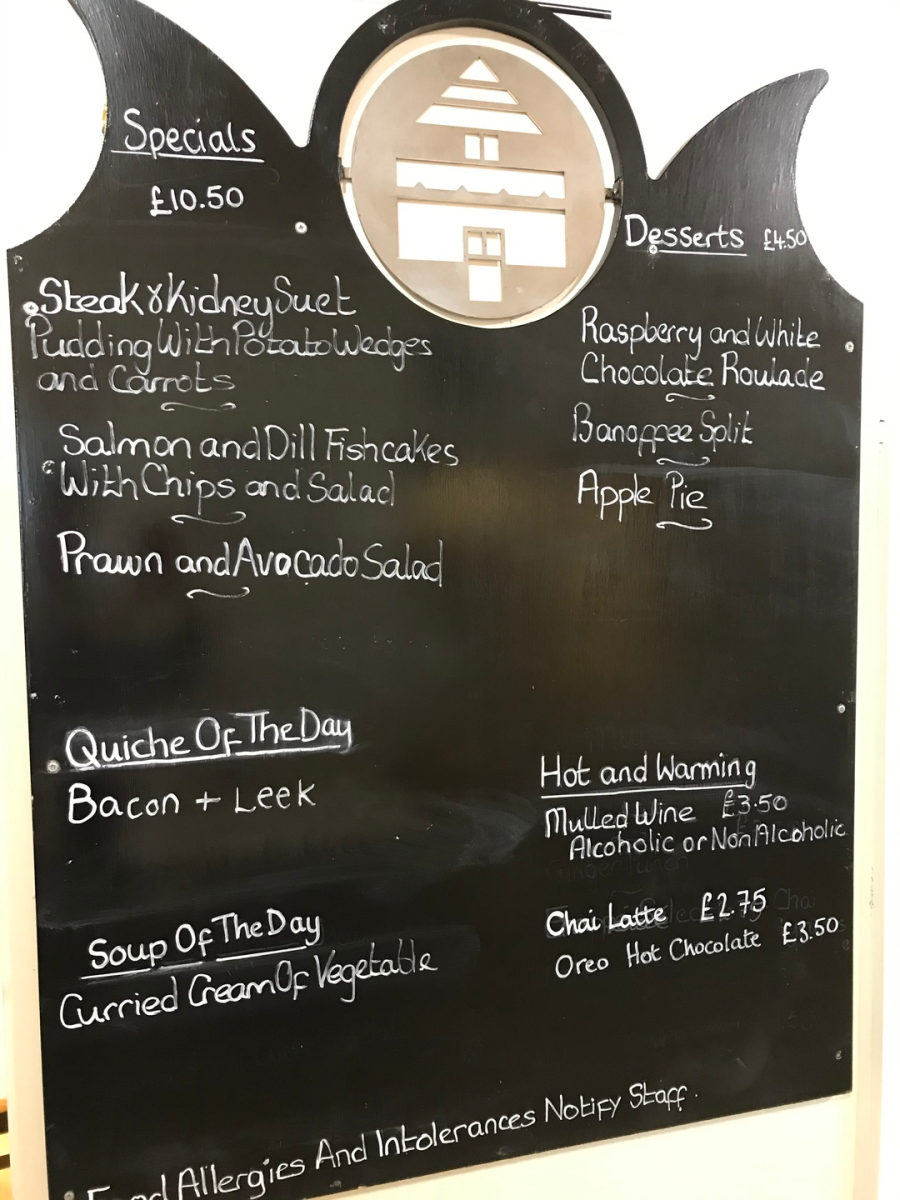 Specials
£10.50
Steak & Kidney Suet
Pudding With Potato Wedges
and Carrots
Salmon and Dill Fishcakes
With Chips and Salad
Prawn and Avocado Salad
Quiche Of The Day
Bacon + Leek
Soup Of The Day
Curried Cream Of Vegetable
Desserts £4.50
Raspberry and White
Chocolate Roulade
Banoffee Split
Apple Pie
Hot and Warming
Mulled Wine £3.50
Alcoholic or Non Alcoholic
Chai Latte £2.75
Oreo Hot Chocolate £3.50
Food Allergies And Intolerances Notify Staff.